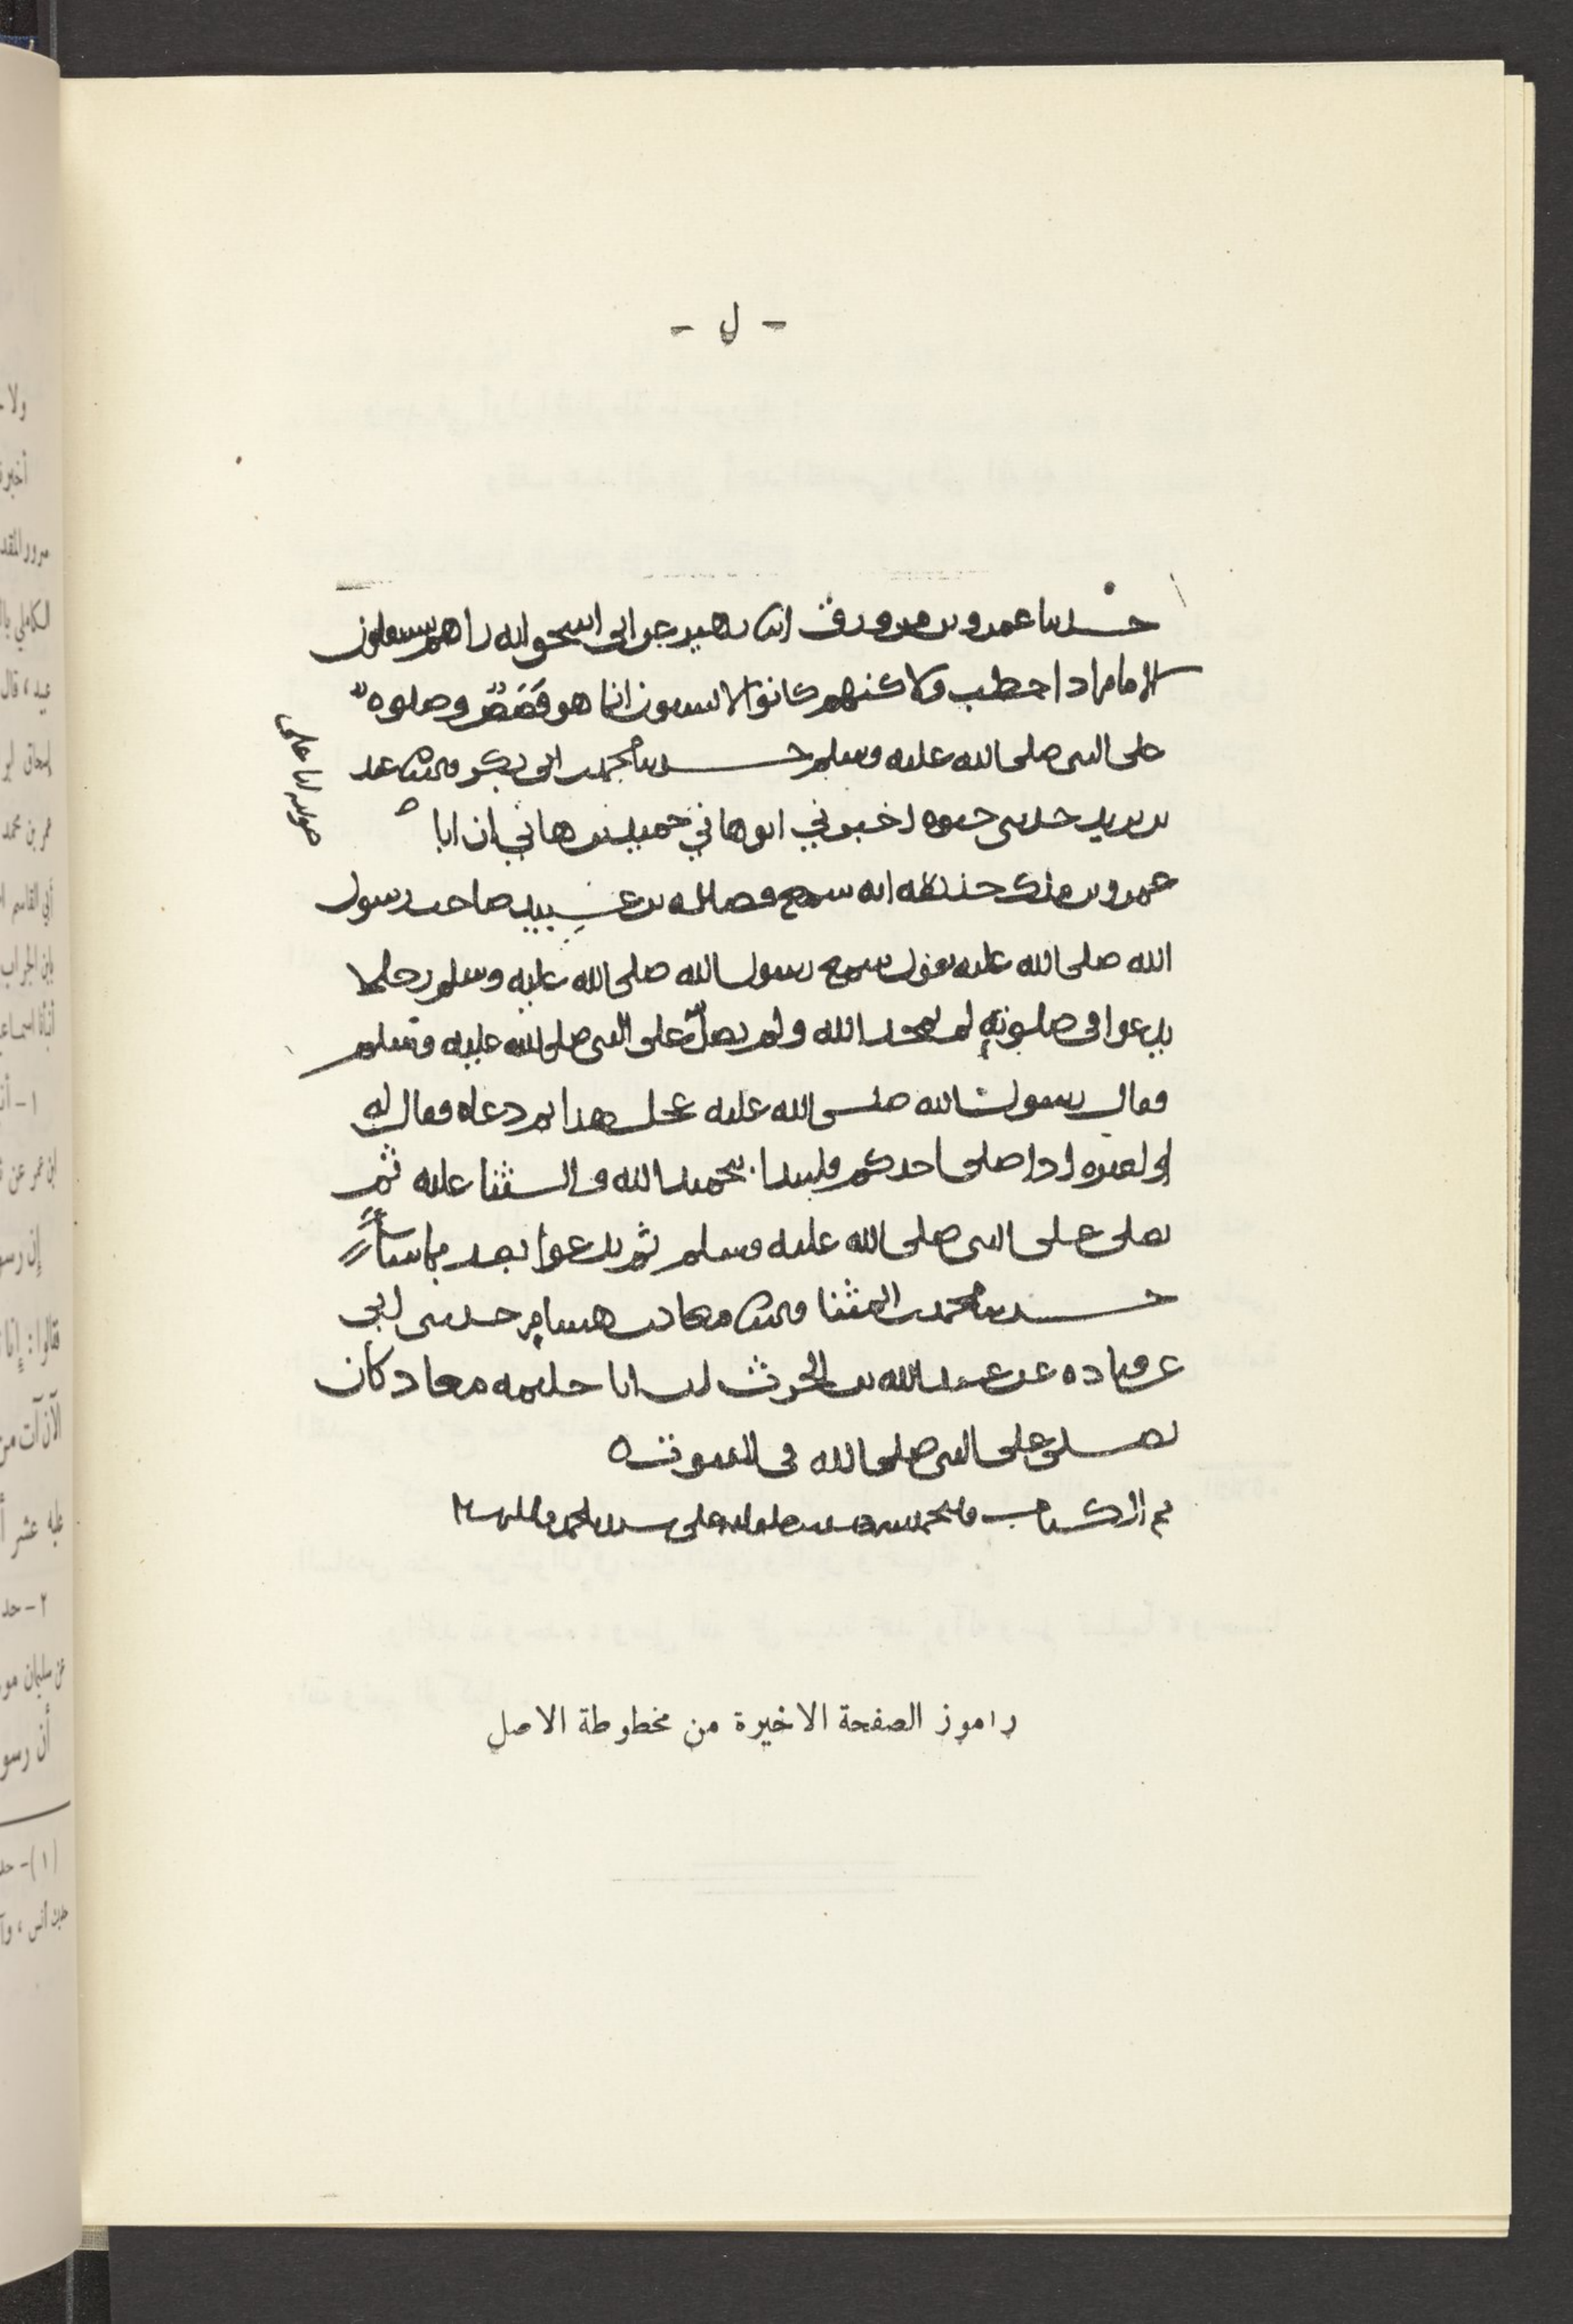 - ل -
حدثنا عمرو بن مرزوق انا زهير عن ابي اسحق انه راهم يستقبلون
الامام اذا خطب ولاكنهم كانوا لا يسعون انما هو قَصَصٌ وصلوه
على النبي صلى الله عليه وسلم حدثنا محمد بن ابي بكر قال ثنا عبد
بن يزيد حدثني حيوه اخبرني ابو هاني حميد بن هاني ان ابا
عمرو بن ملك حدثه انه سمع فضاله بن عبيد صاحب رسول
الله صلى الله عليه يقول سمع رسول الله صلى الله عليه وسلم رجلا
يدعوا في صلوته لم يمجد الله ولم يصلّ على النبي صلى الله عليه وسلم
فقال رسول الله صلى الله عليه عجل هذا ثم دعاه فقال له
او لغيره اذا صلى احدكم فليبدا بتحميد الله والثنا عليه ثم
يصلى على النبي صلى الله عليه وسلم ثم يدعوا بعد بما شأ
حدثنا محمد بن المثنا قال ثنا معاذ بن هشام حدثني ابي
عن قتاده عن عبد الله بن الحرث ان ابا حليمه معاذ كان
يصلى على النبي صلى الله في القنوت
تم الكتاب
راموز الصفحة الاخيرة من مخطوطة الاصل
ولا
مرور المقد
عيد ، قال
عمر بن محمد
أبي القاسم
إن رسو
قالوا : إنا
عليه عشر
٢ - حد
عن سليمان مو
أن رسو
(١) - حد